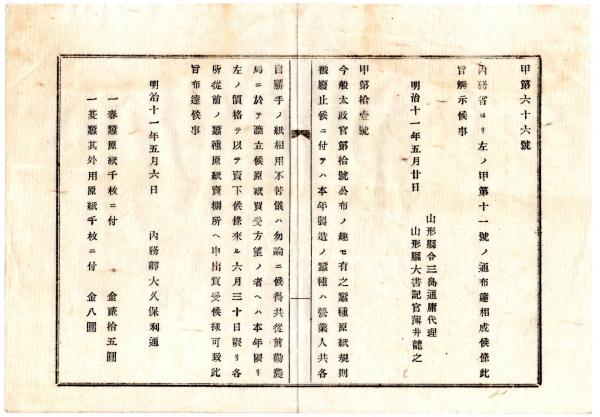 甲第六十六號
内務省ヨリ左ノ甲第十一號ノ通布達相成候條此
旨觸示候事
山形縣令三島通庸代理
明治十一年五月廿日　山形縣大書記官薄井龍之
甲第拾壹號
今般太政官第拾號公布ノ趣モ有之蠶種原紙規則
被廢止候ニ付テハ本年製造ノ蠶種ハ營業人共各
自勝手ノ紙相用不苦儀ハ勿論ニ候得共從前勸農
局ニ於テ漉立候原紙買受方望ノ者ヘハ本年限リ
左ノ價格ヲ以テ賣下候條來ル六月三十日限リ各
所從前ノ蠶種原紙賣捌所ヘ申出買受候樣可致此
旨布達候事
明治十一年五月六日　内務卿大久保利通
一春蠶原紙千枚ニ付　金貳拾五圓
一夏蠶其外用原紙千枚ニ付　金八圓